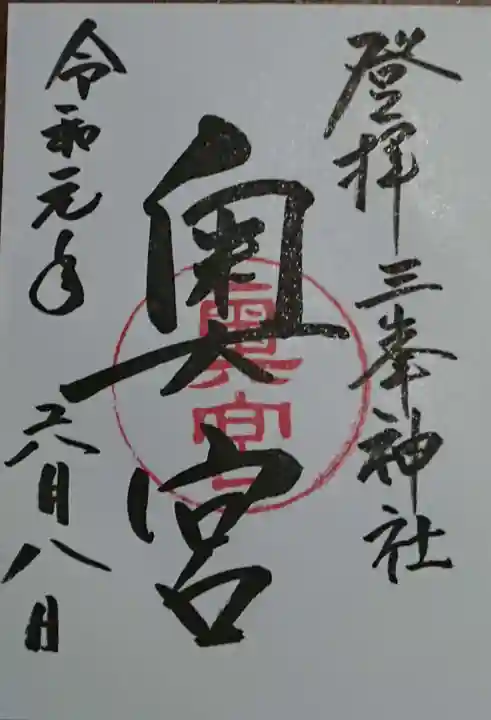 登拝三峯神社
奥宮
奥宮
令和元年
六月八日